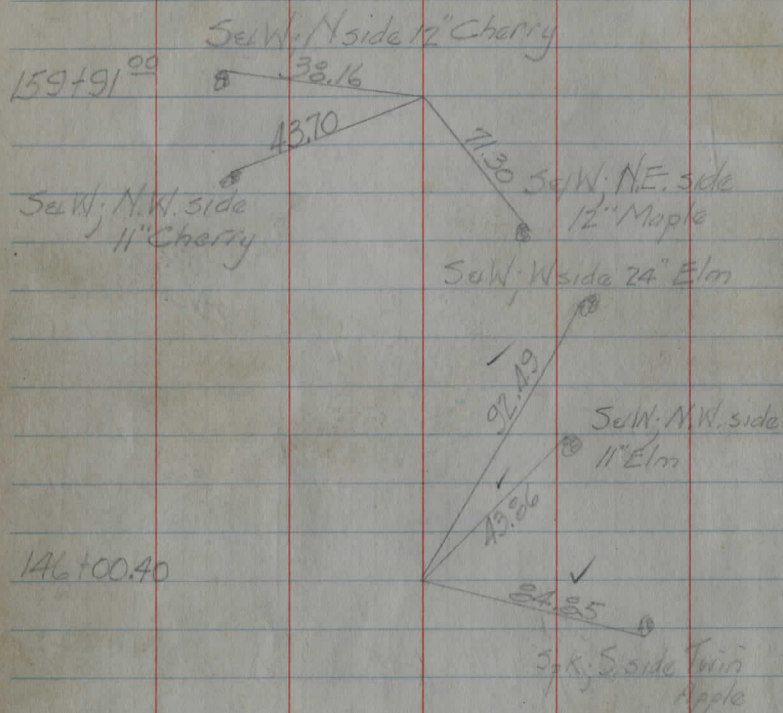 S&W; N side 12" Cherry
159+91 00
38.16
43.70
71.30
S&W; N.W. side
11" Cherry
S&W; N.E. side
12" Maple
S&W; W side 24" Elm
92.49
S&W; N.W. side
11" Elm
43.86
146+00.40
84.85
Spk; S. side Twin
Apple